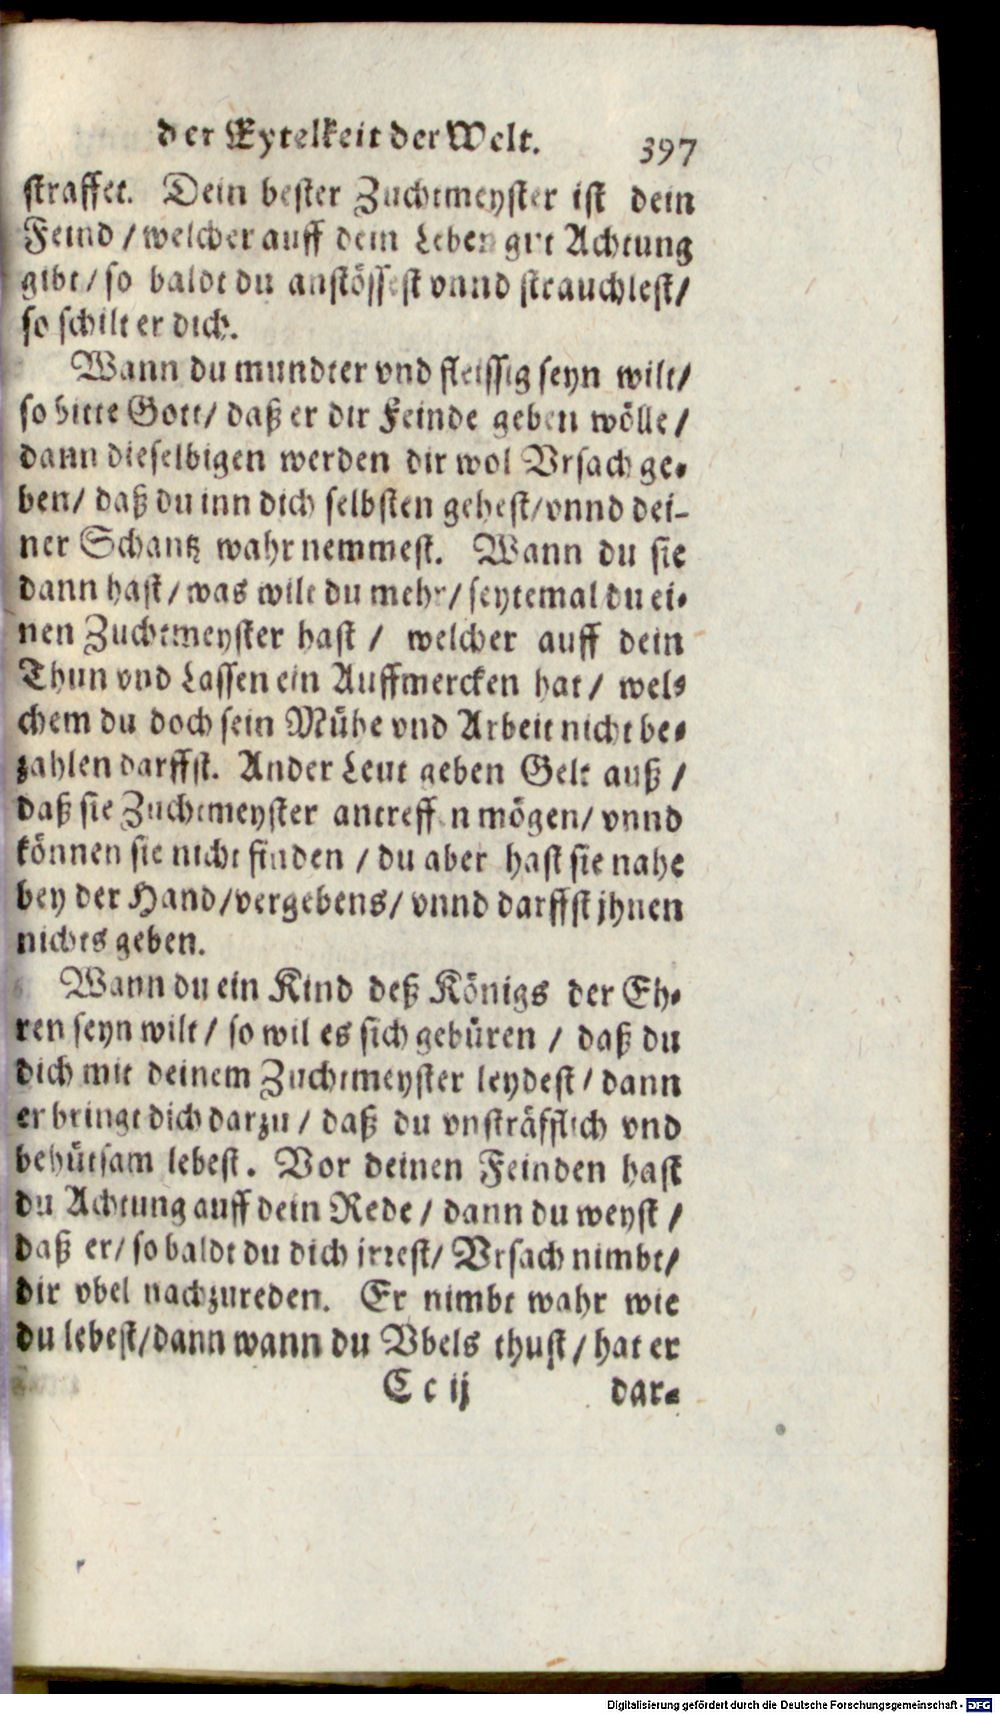 der Eytelkeit der Welt. 397
straffet. Dein bester Zuchtmeyster ist dein
Feind / welcher auff dein Leben gut Achtung
gibt / so baldt du anstössest vnnd strauchlest /
so schilt er dich.
Wann du mundter vnd fleissig seyn wilt /
so bitte Gott / daß er dir Feinde geben wölle /
dann dieselbigen werden dir wol Vrsach ge-
ben / daß du inn dich selbsten gehest / vnnd dei-
ner Schantz wahrnemmest. Wann du sie
dann hast / was wilt du mehr / seytemal du ei-
nen Zuchtmeyster hast / welcher auff dein
Thun vnd Lassen ein Auffmercken hat / wel-
chem du doch sein Mühe vnd Arbeit nicht be-
zahlen darffst. Ander Leut geben Gelt auß /
daß sie Zuchtmeyster antreffen mögen / vnnd
können sie nicht finden / du aber hast sie nahe
bey der Hand / vergebens / vnnd darffst jhnen
nichts geben.
Wann du ein Kind deß Königs der Eh-
ren seyn wilt / so wil es sich gebüren / daß du
dich mit deinem Zuchtmeyster leydest / dann
er bringt dich darzu / daß du vnsträfflich vnd
behütsam lebest. Vor deinen Feinden hast
du Achtung auff dein Rede / dann du weyst /
daß er / so baldt du dich jrrest / Vrsach nimbt /
dir vbel nachzureden. Er nimbt wahr wie
du lebest / dann wann du Vbels thust / hat er
Cc ij dar-
Digitalisierung gefördert durch die Deutsche Forschungsgemeinschaft - DFG